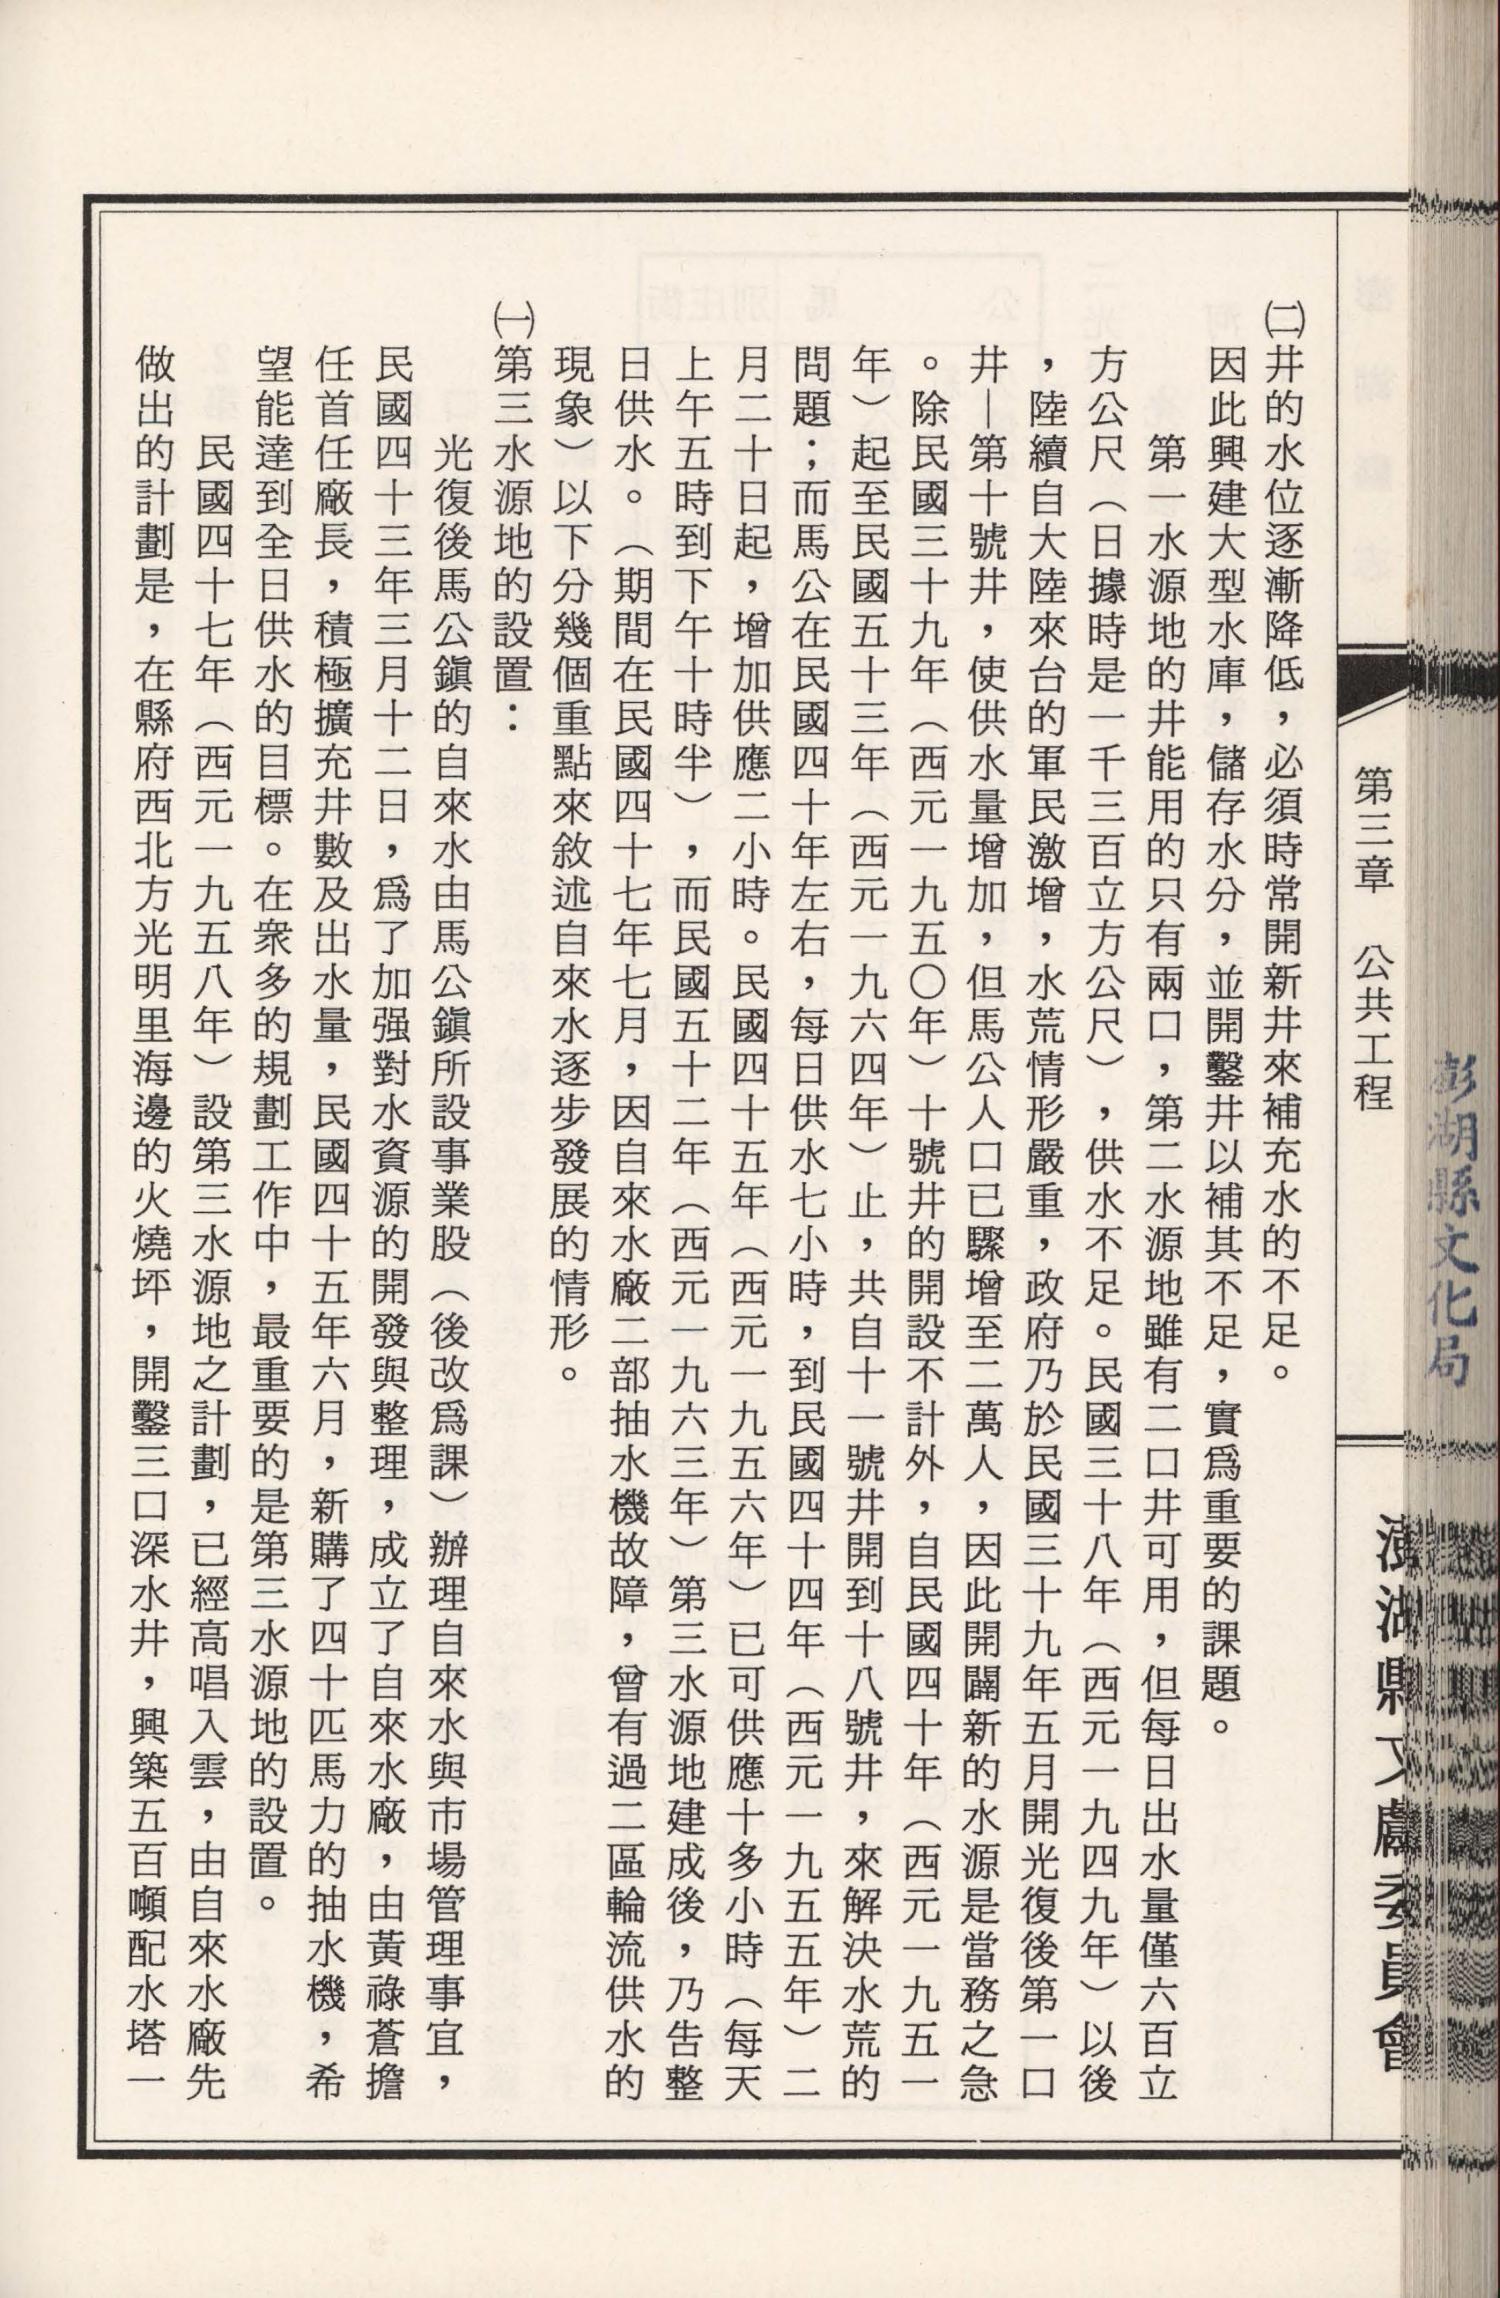 第三章　公共工程
澎湖縣文獻委員會
澎湖縣文化局
㈡井的水位逐漸降低，必須時常開新井來補充水的不足。
因此興建大型水庫，儲存水分，並開鑿井以補其不足，實爲重要的課題。
第一水源地的井能用的只有兩口，第二水源地雖有二口井可用，但每日出水量僅六百立
方公尺（日據時是一千三百立方公尺），供水不足。民國三十八年（西元一九四九年）以後
，陸續自大陸來台的軍民激增，水荒情形嚴重，政府乃於民國三十九年五月開光復後第一口
井—第十號井，使供水量增加，但馬公人口已驟增至二萬人，因此開闢新的水源是當務之急
。除民國三十九年（西元一九五〇年）十號井的開設不計外，自民國四十年（西元一九五一
年）起至民國五十三年（西元一九六四年）止，共自十一號井開到十八號井，來解決水荒的
問題；而馬公在民國四十年左右，每日供水七小時，到民國四十四年（西元一九五五年）二
月二十日起，增加供應二小時。民國四十五年（西元一九五六年）已可供應十多小時（每天
上午五時到下午十時半），而民國五十二年（西元一九六三年）第三水源地建成後，乃告整
日供水。（期間在民國四十七年七月，因自來水廠二部抽水機故障，曾有過二區輪流供水的
現象）以下分幾個重點來敘述自來水逐步發展的情形。
㈠第三水源地的設置：
光復後馬公鎭的自來水由馬公鎭所設事業股（後改爲課）辦理自來水與市場管理事宜，
民國四十三年三月十二日，爲了加强對水資源的開發與整理，成立了自來水廠，由黃祿蒼擔
任首任廠長，積極擴充井數及出水量，民國四十五年六月，新購了四十匹馬力的抽水機，希
望能達到全日供水的目標。在衆多的規劃工作中，最重要的是第三水源地的設置。
民國四十七年（西元一九五八年）設第三水源地之計劃，已經高唱入雲，由自來水廠先
做出的計劃是，在縣府西北方光明里海邊的火燒坪，開鑿三口深水井，興築五百噸配水塔一